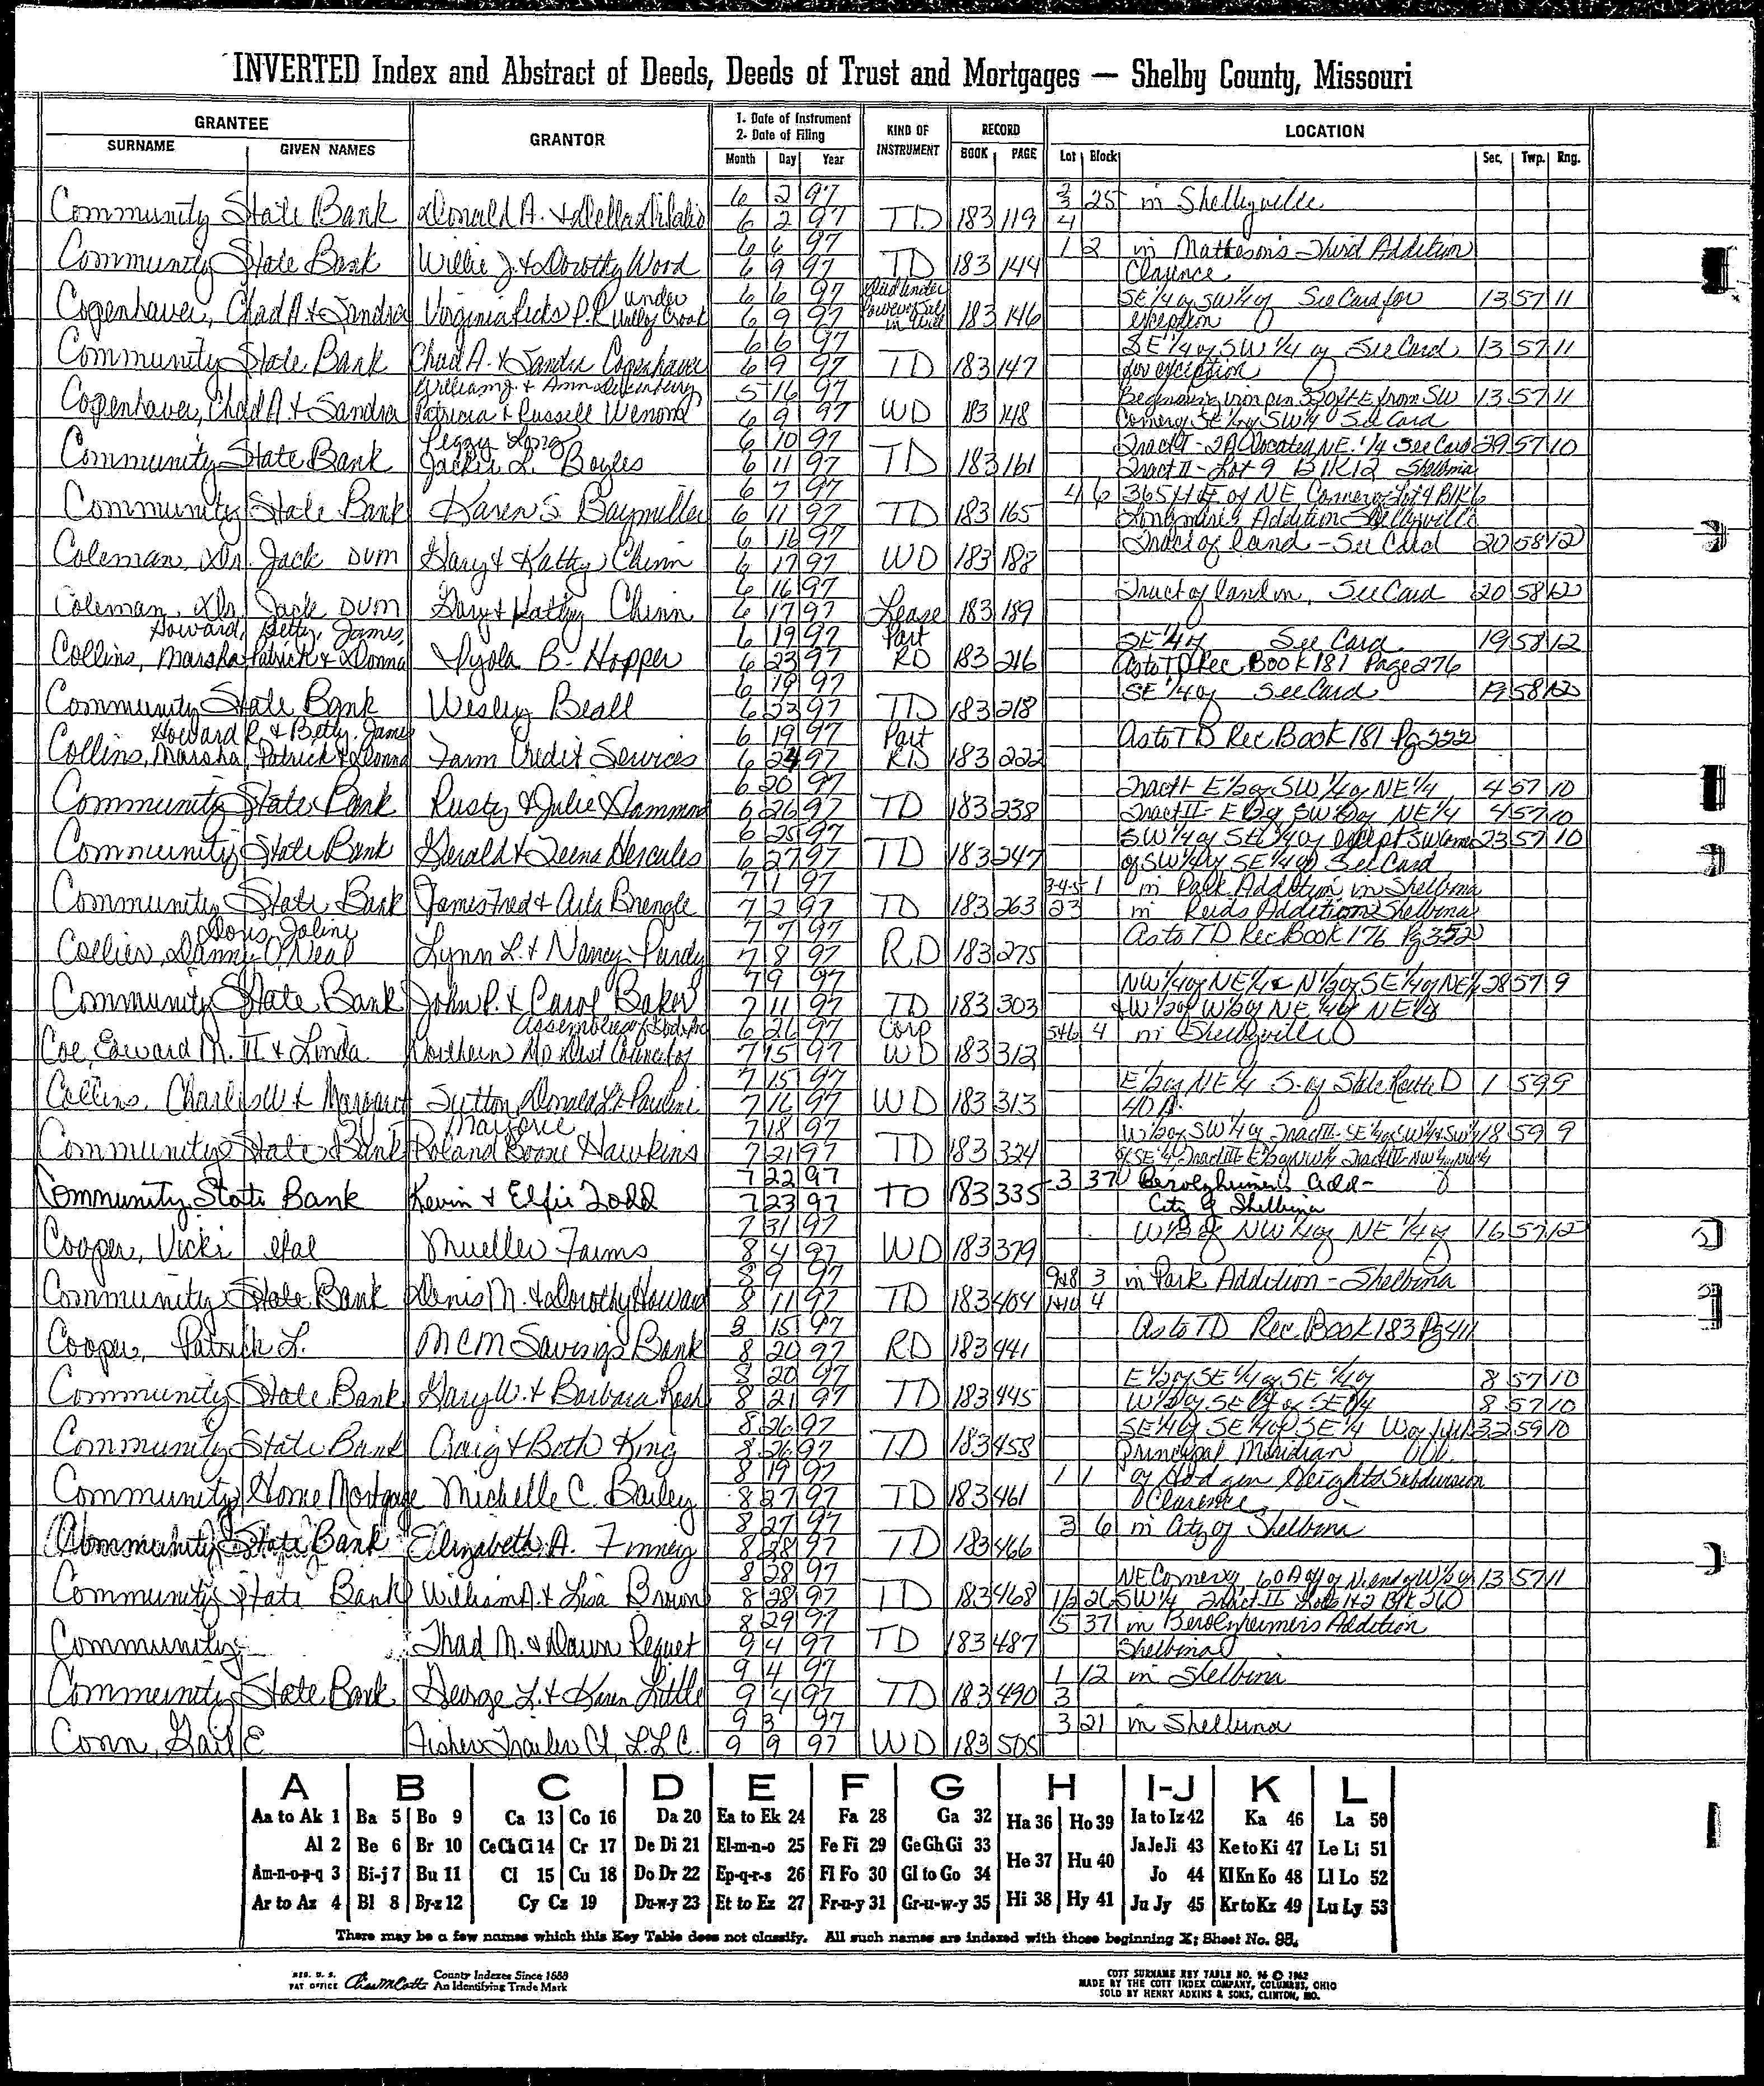 INVERTED Index and Abstract of Deeds, Deeds of Trust and Mortgages — Shelby County, Missouri
GRANTEE GRANTOR 1. Date of Instrument 2. Date of Filing KIND OF INSTRUMENT RECORD LOCATION
SURNAME GIVEN NAMES Month Day Year BOOK PAGE Lot Block Sec. Twp. Rng.
6 2 97 3 25 in Shelbyville
Community State Bank Donald A. & Della 6 2 97 TD 183 119 4
6 6 97 1 2 in Matheson's Third Addition
Community State Bank Willie J. & Dorothy Wood 6 9 97 TD 183 144 Clarence
under 6 6 97 Deed under SE 1/4 of SW 1/4 of See Card for 13 57 11
Copenhaver, Chad A & Sandra Virginia Ricks P.R. 6 9 97 Power of Sale in Will 183 146 exception
6 6 97 SE 1/4 of SW 1/4 of See Card 13 57 11
Community State Bank Chad A. & Sandra Copenhaver 6 9 97 TD 183 147 for exception
William J. & Ann 5 16 97 Beginning iron pin 320ft E from SW 13 57 11
Copenhaver, Chad A. & Sandra Patricia & Russell 6 9 97 WD 183 148 Corner of SE 1/4 of SW 1/4 See Card
Peggy Long 6 10 97 Tract I - 2A located NE 1/4 See Card 29 57 10
Community State Bank Jackie L. Boyles 6 11 97 TD 183 161 Tract II - Lot 9 Blk 12 Shelbina
6 7 97 4 6 365 ft of NE Corner of Lot 4 Blk 6
Community State Bank Karen S Baymiller 6 11 97 TD 183 165 Addition Shelbyville
6 16 97 Tract of land - See Card 20 58 12
Coleman, Dr. Jack DVM Gary & Kathy Chinn 6 17 97 WD 183 188
6 16 97 Tract of land in, See Card 20 58 12
Coleman, Dr. Jack DVM Gary & Kathy Chinn 6 17 97 Lease 183 189
Howard, Betty, James, 6 19 97 Part SE 1/4 of See Card 19 58 12
Collins, Marsha Patrick & Donna B. Hopper 6 23 97 RD 183 216 As to TD Rec Book 181 Page 276
6 19 97 SE 1/4 of See Card 19 58 12
Community State Bank Wesley Beall 6 23 97 TD 183 218
Howard R. & Betty, James 6 19 97 Part As to TD Rec Book 181 Pg 222
Collins, Marsha, Patrick & Donna Farm Credit Services 6 24 97 RD 183 222
6 20 97 Tract I E 1/2 of SW 1/4 of NE 1/4 4 57 10
Community State Bank Rusty & Julie 6 26 97 TD 183 238 Tract II - E 1/2 of SW 1/4 of NE 1/4 4 57 10
6 25 97 SW 1/4 of SE 1/4 of except SW corner 23 57 10
Community State Bank Gerald & Teena Hercules 6 27 97 TD 183 247 of SW 1/4 of SE 1/4 of See Card
7 1 97 3-4-5 1 in Park Addition in Shelbina
Community State Bank James Fred & Arla Brengle 7 2 97 TD 183 263 23 in Reids Addition Shelbina
Doris, Joline 7 7 97 As to TD Rec Book 176 Pg 352
Collier, Danny O'Neal Lynn L. & Nancy Purdy 7 8 97 RD 183 275
7 9 97 NW 1/4 of NE 1/4 & N 1/2 of SE 1/4 of NE 1/4 28 57 9
Community State Bank John P. & Carol Baker 7 11 97 TD 183 303 & W 1/2 of W 1/2 of NE 1/4 of NE 1/4
Assemblies of God Inc 6 26 97 Corp 5&6 4 in Shelbyville
Coe, Edward M. II & Linda Northern Mo Dist Council of 7 15 97 WD 183 312
7 15 97 E 1/2 of NE 1/4 S. of State Route D 1 59 9
Collins, Charles W & Margaret Sutton, Donald L & Pauline 7 16 97 WD 183 313 40 A.
Marjorie 7 18 97 W 1/2 of SW 1/4 of Tract II - SE 1/4 of SW 1/4 & SW 1/4 18 59 9
Community State Bank Roland Boone Hawkins 7 21 97 TD 183 324 of SE 1/4 Tract III E 1/2 of NW 1/4
7 22 97 3 37 Berolzheimer's Add-
Community State Bank Kevin & Elfie Todd 7 23 97 TD 183 335 City of Shelbina
7 31 97 W 1/2 of NW 1/4 of NE 1/4 of 16 57 12
Cooper, Vicki etal Mueller Farms 8 4 97 WD 183 379
8 9 97 9&8 3 in Park Addition - Shelbina
Community State Bank Denis M. & Dorothy Howard 8 11 97 TD 183 404 1&10 4
8 15 97 As to TD Rec. Book 183 Pg 411
Cooper, Patrick L. MCM Savings Bank 8 20 97 RD 183 441
8 20 97 E 1/2 of SE 1/4 of SE 1/4 of 8 57 10
Community State Bank Gary W. & Barbara Rash 8 21 97 TD 183 445 W 1/2 of SE 1/4 of SE 1/4 8 57 10
8 26 97 SE 1/4 of SE 1/4 of SE 1/4 W of 32 59 10
Community State Bank Craig & Beth King 8 26 97 TD 183 458 Principal Meridian
8 19 97 1 1 of Hodgen Heights Subdivision
Community Home Mortgage Michelle C. Bailey 8 27 97 TD 183 461 Clarence
8 27 97 3 6 in City of Shelbina
Community State Bank Elizabeth A. Finney 8 28 97 TD 183 466
8 28 97 NE Corner of 60 A off of N. end of W 1/2 of 13 57 11
Community State Bank William A. & Lisa Brown 8 28 97 TD 183 468 1/2 26 SW 1/4 Tract II Lots 1&2 Blk 26
8 29 97 5 37 in Berolzheimer's Addition
Community Thad M. & Dawn Requet 9 4 97 TD 183 487 Shelbina
9 4 97 1 12 in Shelbina
Community State Bank George L. & Karen Little 9 4 97 TD 183 490 3
9 3 97 3 21 in Shelbina
Conn, Gail E Fisher Trailer Ct, L.L.C. 9 9 97 WD 183 505
A B C D E F G H I-J K L
Aa to Ak 1 Ba 5 Bo 9 Ca 13 Co 16 Da 20 Ea to Ek 24 Fa 28 Ga 32 Ha 36 Ho 39 Ia to Iz 42 Ka 46 La 50
Al 2 Be 6 Br 10 Ce Ch Ci 14 Cr 17 De Di 21 El-m-n-o 25 Fe Fi 29 Ge Gh Gi 33 He 37 Hu 40 Ja Je Ji 43 Ke to Ki 47 Le Li 51
Am-n-o-p-q 3 Bi-j 7 Bu 11 Cl 15 Cu 18 Do Dr 22 Ep-q-r-s 26 Fl Fo 30 Gl to Go 34 Jo 44 Kl Kn Ko 48 Ll Lo 52
Ar to Az 4 Bl 8 By-z 12 Cy Cz 19 Du-w-y 23 Et to Ez 27 Fr-u-y 31 Gr-u-w-y 35 Hi 38 Hy 41 Ju Jy 45 Kr to Kz 49 Lu Ly 53
There may be a few names which this Key Table does not classify. All such names are indexed with those beginning X; Sheet No. 95.
REG. U. S. PAT. OFFICE County Indexes Since 1888 An Identifying Trade Mark
COTT SURNAME KEY TABLE NO. 96 © 1962
MADE BY THE COTT INDEX COMPANY, COLUMBUS, OHIO
SOLD BY HENRY ADKINS & SONS, CLINTON, MO.